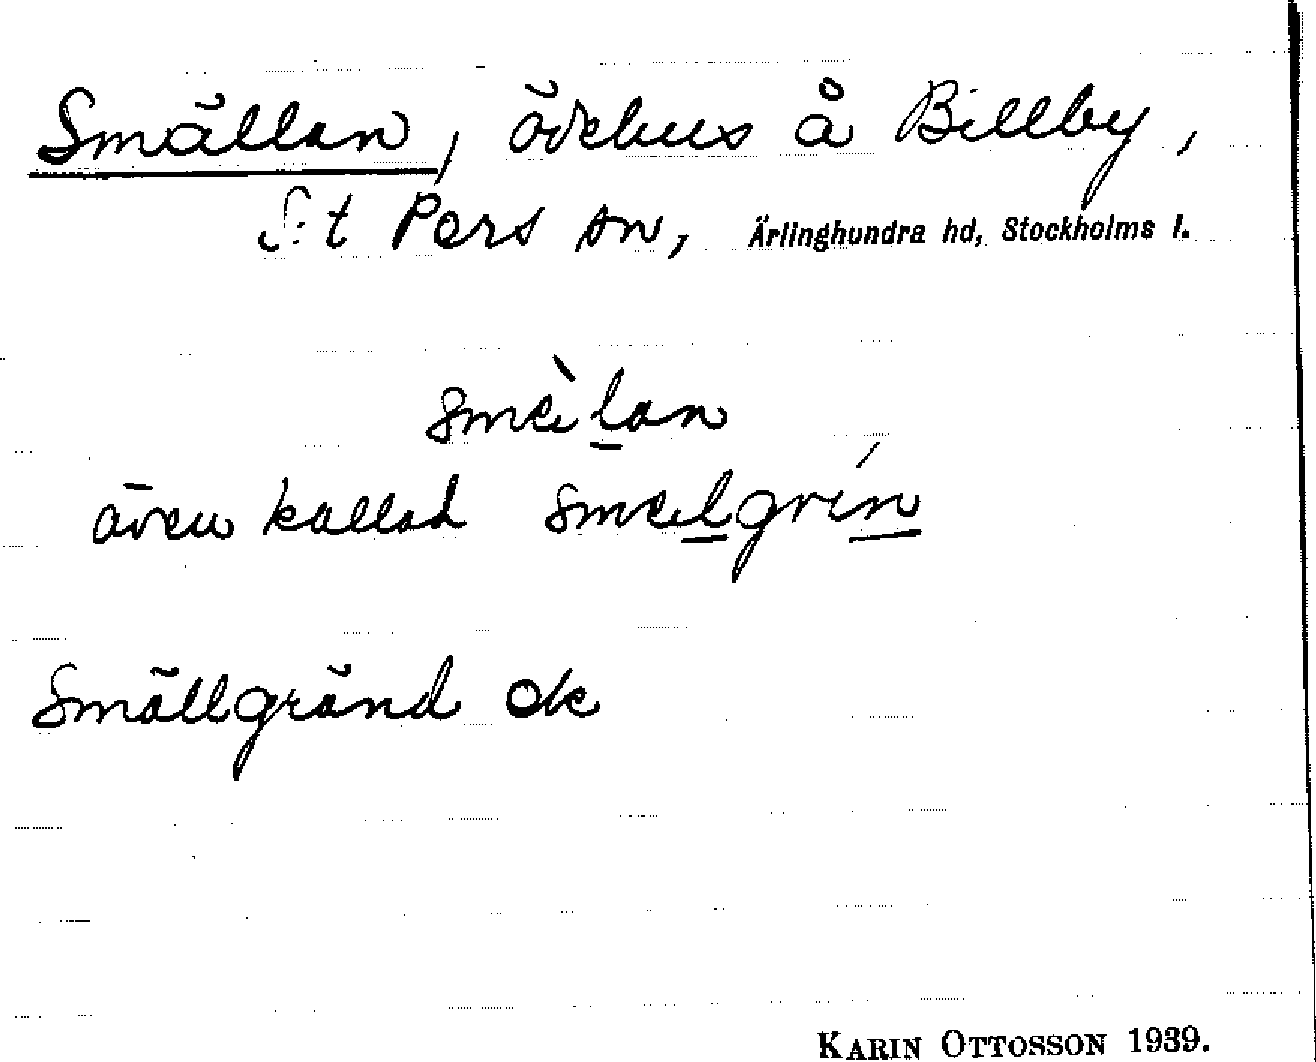 Smällan, ödehus å Billby,
S:t Pers sn, Ärlinghundra hd, Stockholms l.
smèlan
även kallat smelgrín
Smällgränd ok
KARIN OTTOSSON 1939.